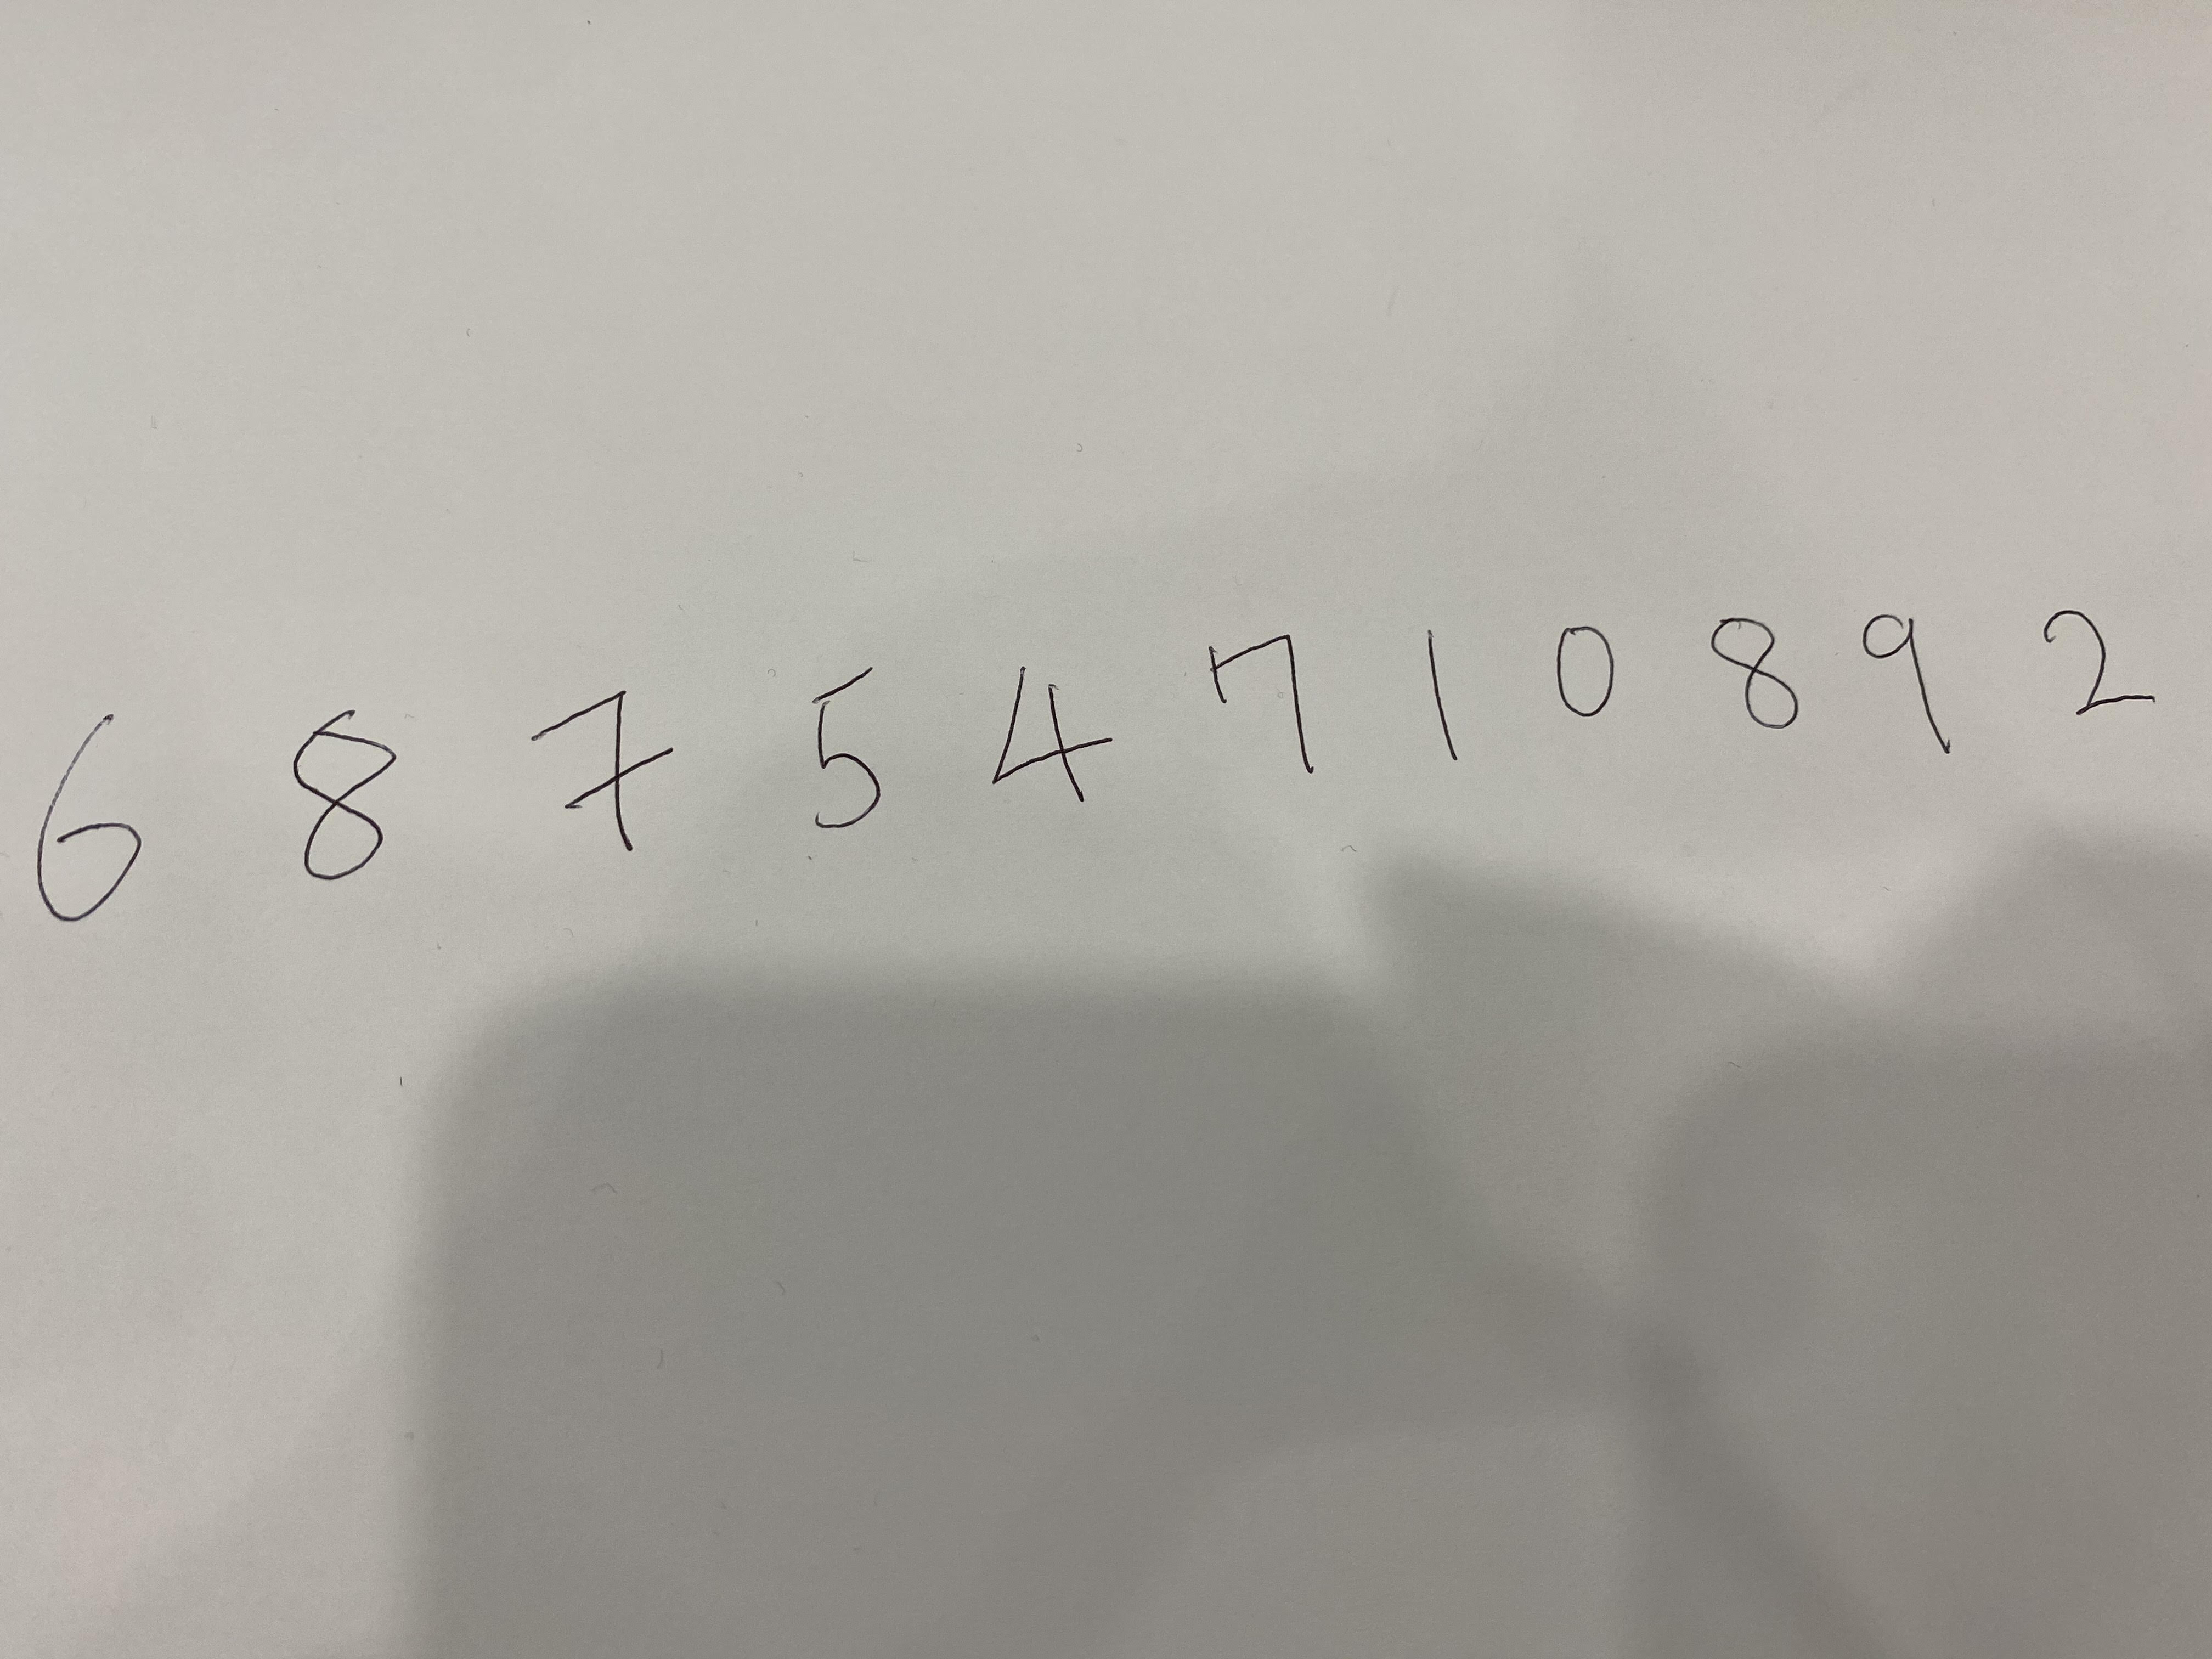 6 8 7 5 4 7 1 0 8 9 2